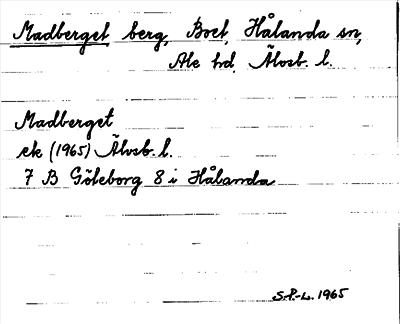 Madberget berg, Boet, Hålanda sn,
Ale hd, Älvsb. l.
Madberget
ek (1965) Älvsb. l.
7 B Göteborg 8 i Hålanda
S.P.-L. 1965